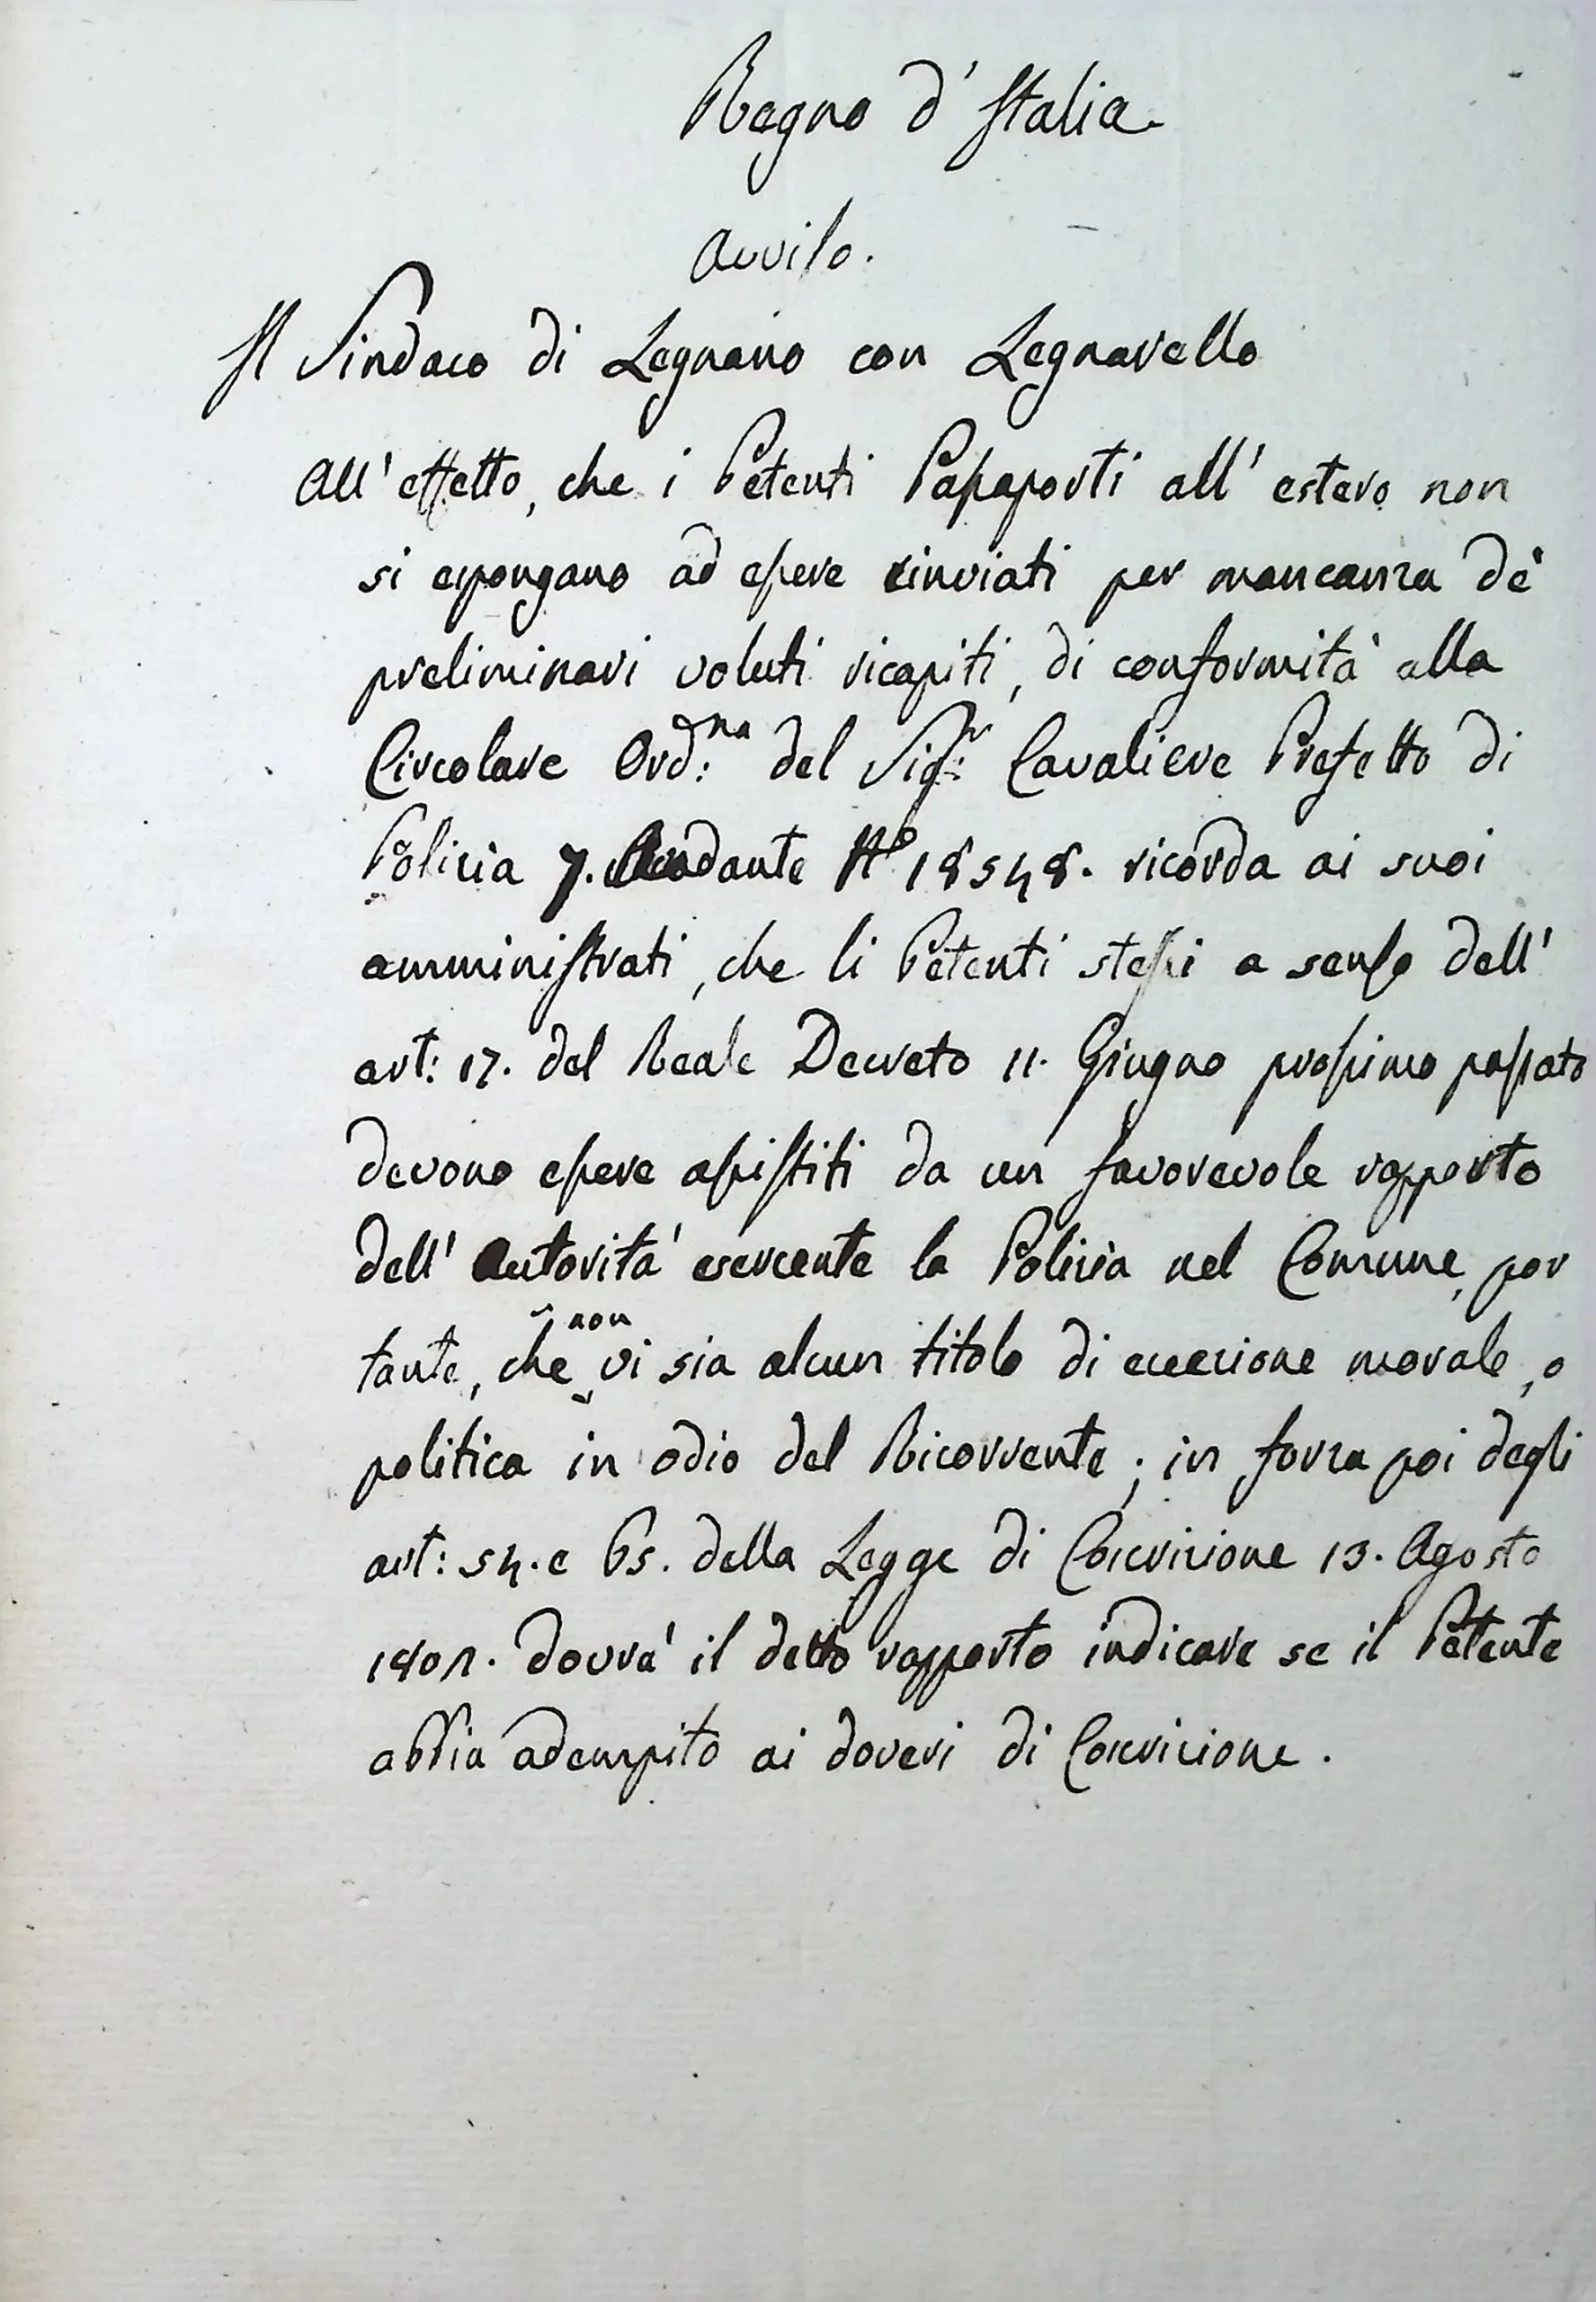 Regno d'Italia.
Avviso.
Il Sindaco di Legnano con Legnarello
All'effetto, che i Petenti Passaporti all'estero non
si espongano ad essere rinviati per mancanza de'
preliminari voluti ricapiti, di conformità alla
Circolare Ord:na del Sig:r Cavaliere Prefetto di
Polizia 7. Andante N° 18548. ricorda ai suoi
amministrati, che li Petenti stessi a senso dell'
art: 17. del Reale Decreto 11. Giugno prossimo passato
devono essere assistiti da un favorevole rapporto
dell'Autorità esercente la Polizia nel Comune, por
tante, che non vi sia alcun titolo di eccezione morale, o
politica in odio del Ricorrente; in forza poi degli
art: 54. e 65. della Legge di Coscrizione 13. Agosto
dovrà il detto rapporto indicare se il Petente
abbia adempito ai doveri di Coscrizione.